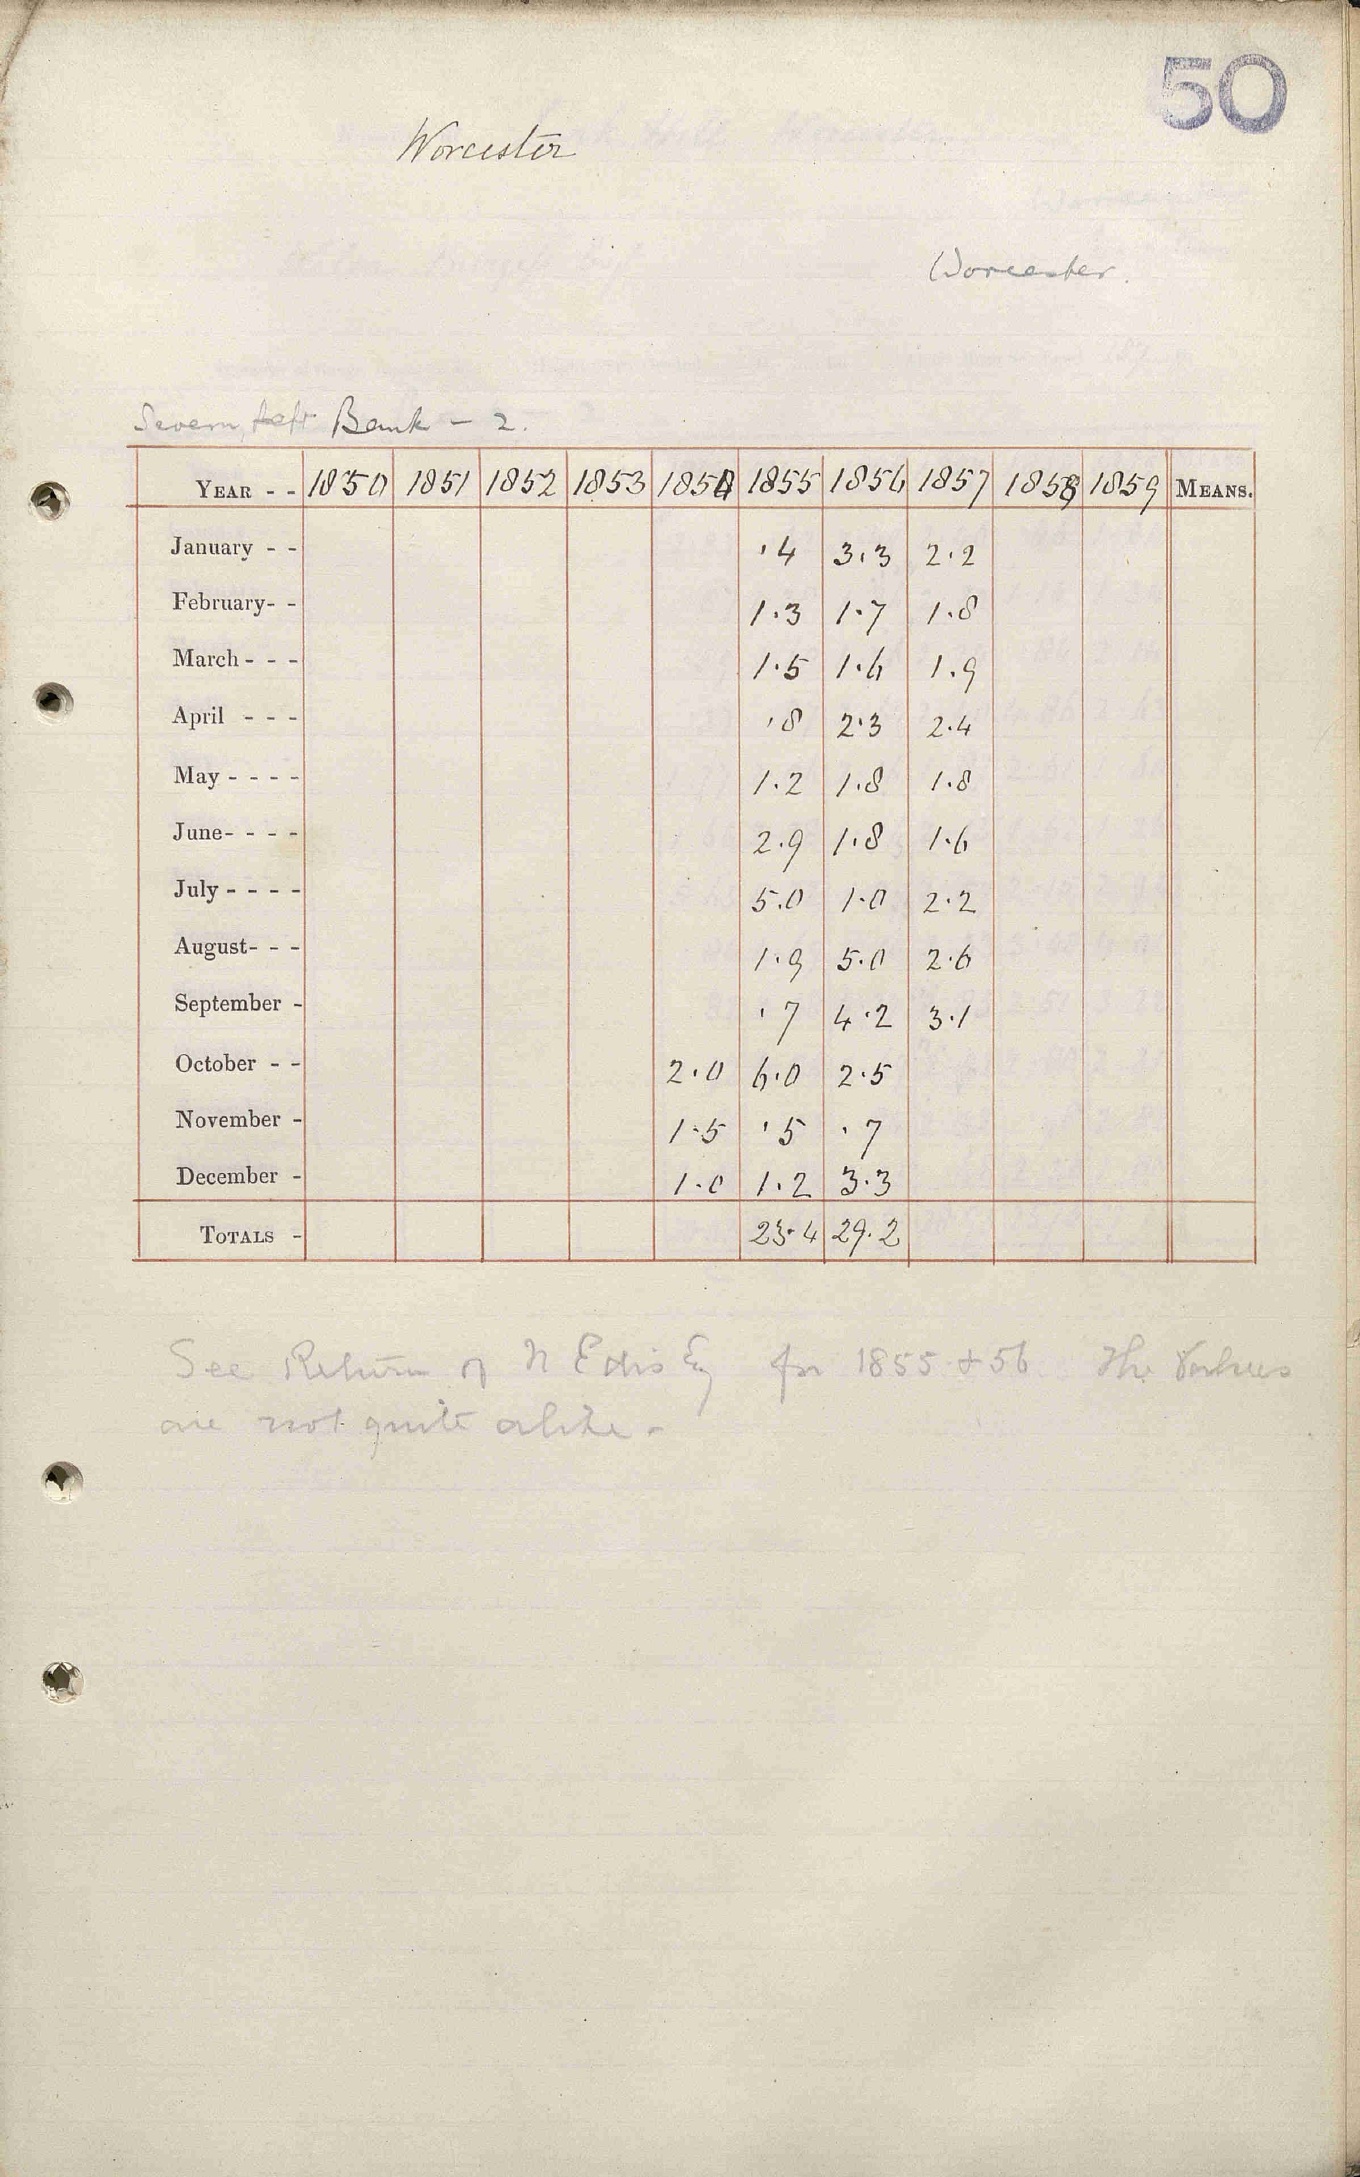 50
Worcester
Worcester.
Severn, left Bank - 2.
YEAR - - 1850 1851 1852 1853 1854 1855 1856 1857 1858 1859 MEANS.
January - - ·4 3·3 2·2
February- - 1·3 1·7 1·8
March - - - 1·5 1·6 1·9
April - - - ·8 2·3 2·4
May - - - - 1·2 1·8 1·8
June- - - - 2·9 1·8 1·6
July - - - - 5·0 1·0 2·2
August- - - 1·9 5·0 2·6
September - ·7 4·2 3·1
October - - 2·0 6·0 2·5
November - 1·5 ·5 ·7
December - 1·0 1·2 3·3
TOTALS - 23·4 29·2
See Return of N Edis Esq for 1855 + 56. The Values
are not quite alike -